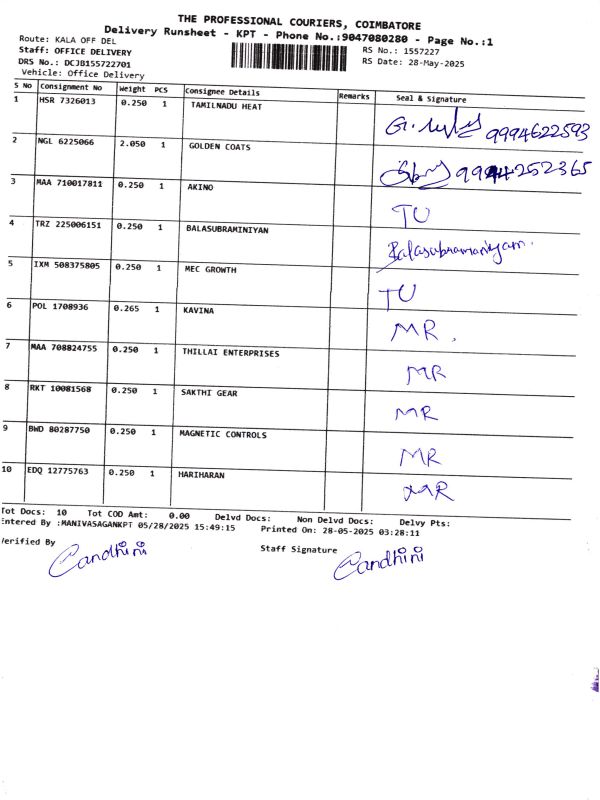 THE PROFESSIONAL COURIERS, COIMBATORE
Delivery Runsheet - KPT - Phone No.:9047080280 - Page No.:1
Route: KALA OFF DEL
RS No.: 1557227
Staff: OFFICE DELIVERY
RS Date: 28-May-2025
DRS No.: DCJB155722701
Vehicle: Office Delivery
S No Consignment No Weight PCS Consignee Details Remarks Seal & Signature
1 HSR 7326013 0.250 1 TAMILNADU HEAT 9994622593
2 NGL 6225066 2.050 1 GOLDEN COATS 9994252365
3 MAA 710017811 0.250 1 AKINO TU
4 TRZ 225006151 0.250 1 BALASUBRAMINIYAN Balasubramaniyam.
5 IXM 508375805 0.250 1 MEC GROWTH TU
6 POL 1708936 0.265 1 KAVINA MR
7 MAA 708824755 0.250 1 THILLAI ENTERPRISES MR
8 RKT 10081568 0.250 1 SAKTHI GEAR MR
9 BWD 80287750 0.250 1 MAGNETIC CONTROLS MR
10 EDQ 12775763 0.250 1 HARIHARAN MR
Tot Docs: 10 Tot COD Amt: 0.00 Delvd Docs: Non Delvd Docs: Delvy Pts:
Entered By :MANIVASAGANKPT 05/28/2025 15:49:15 Printed On: 28-05-2025 03:28:11
Verified By Candhini Staff Signature Candhini